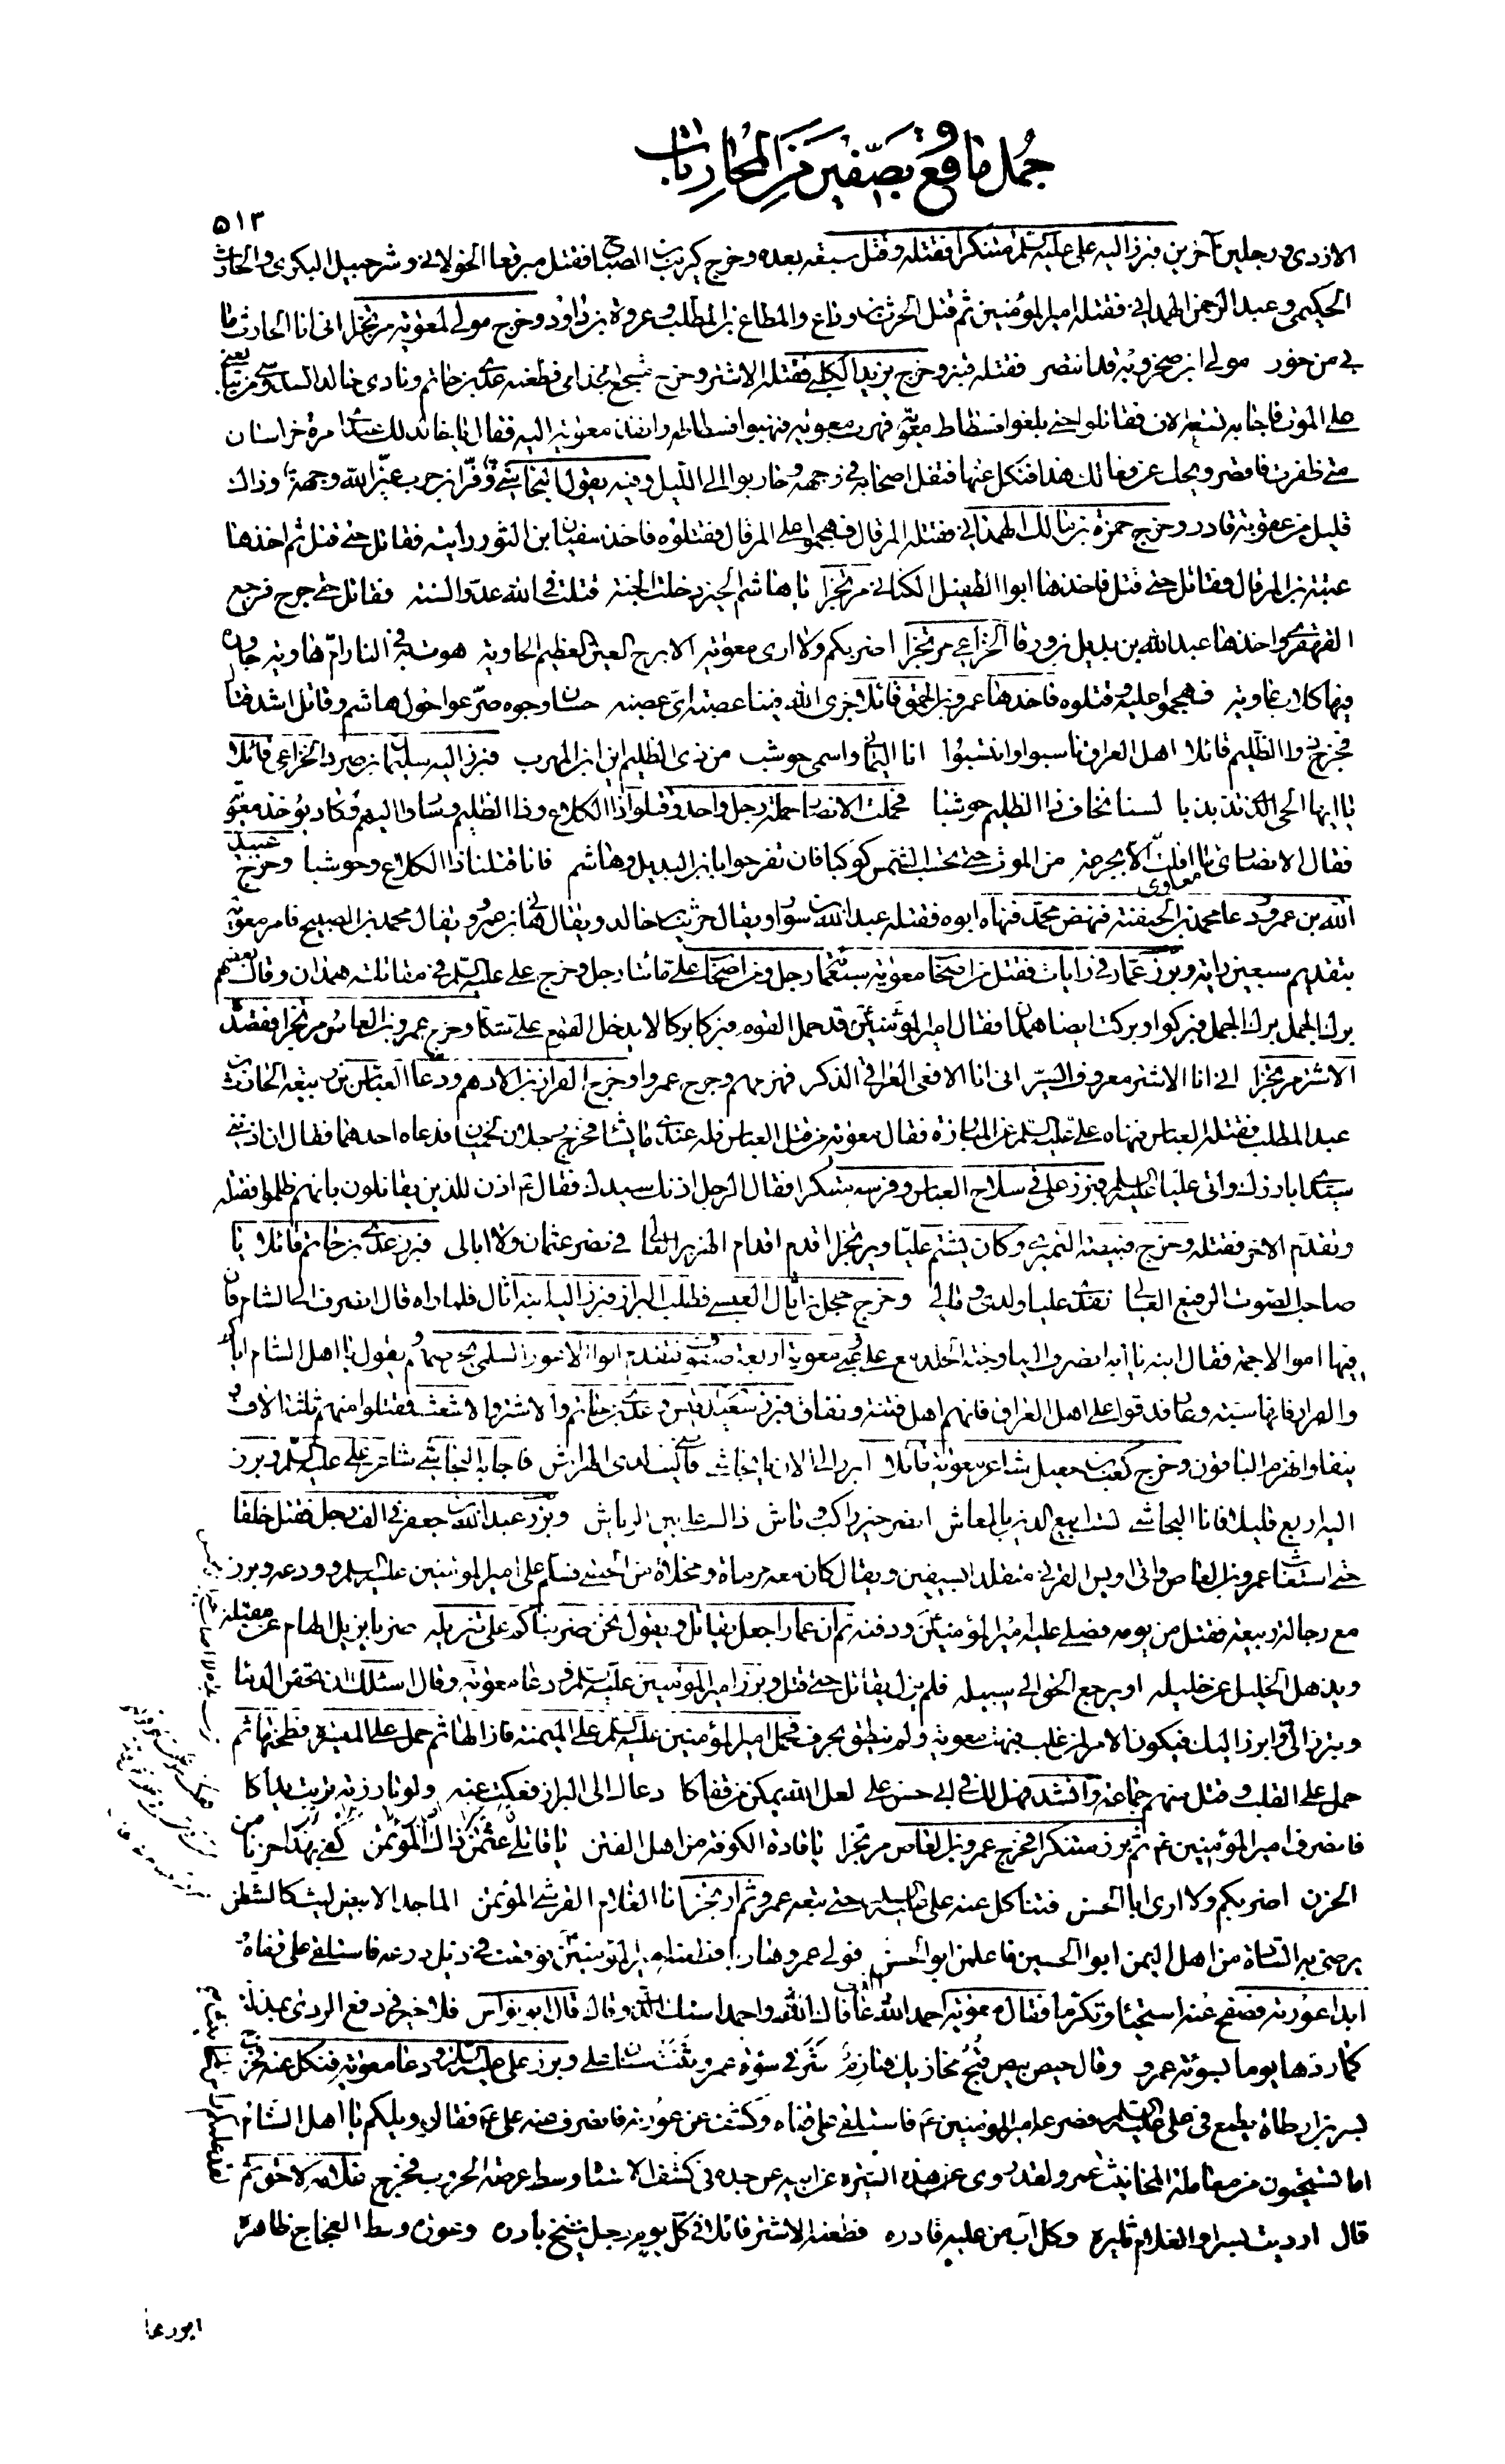 جُمل ما وقع بصفّين من المحاربات
٥١٣
الازدى ورجلين آخرين فبرز اليه على عليه السلم متنكرا فقتله وقتل سبعة بعده وخرج كريب بن الصباح فقتل مبرقعا الخولانى وشرحبيل البكرى والحارث
الحكيمى وعبد الرحمن الهمدانى فقتله امير المؤمنين ثم قتل الحرث بن وداع والمطاع بن المطلب وعروة بن داود وخرج مولى لمعوية مرتجزا انى انا الحارث ما
بى من خور مولى ابن صخر وبه قد انتصر فقتله قنبر وخرج بريد الكلبى فقتله الاشتر وخرج مشجع الجذامى فطعنه عدى بن حاتم ونادى خالد السدوسى من يبايعنى
على الموت فاجابه تسعة الاف فقاتلوا حتى بلغوا فسطاط معوية فهرب معوية فنهبوا فسطاطه وانفذ معوية اليه فقال يا خالد لك عندى امرة خراسان
متى ظفرت فاقصر ويحك عن فعالك هذا فنكل عنها فتفل اصحابه فى وجهه وحاربوا الى الليل وفيه يقول النجاشى وفرّ ابن حرب غبّر الله وجهه وذاك
قليل من عقوبة قادر وخرج حمزة بن مالك الهمدانى فقتله المرقال فهجموا على المرقال فقتلوه فاخذ سفيان ابن الثور رايته فقاتل حتى قتل ثم اخذها
عتبة بن المرقال فقاتل حتى قتل فاخذها ابوا الطفيل الكنانى مرتجزا يا هاشم الخير دخلت الجنة قتلت فى الله عدو السنة فقاتل حتى جرح فرجع
القهقرى واخذها عبد الله بن بديل بن ورقا الخزاعى مرتجزا اضربكم ولا ارى معوية الابرج العين العظيم الحاوية هوت به فى النار امّ هاوية جاوره
فيها كلاب عاوية فهجموا عليه فقتلوه فاخذها عمرو بن الحمق قائلا جزى الله فينا عصبة اىّ عصبة حسان وجوه صرّعوا حول هاشم وقاتل اشد قتال
فخرج ذو الظليم قائلا اهل العراق ناسبوا وانتسبوا انا اليمانى واسمى حوشب من ذى الظليم اين اين المهرب فبرز اليه سليمان بن صرد الخزاعى قائلا
يا ايها الحى الذى تذبذبا لسنا نخاف ذا الظليم حوشبا فحملت الانصار حملة رجل واحد وقتلوا ذا الكلاع وذا الظليم وساروا اليهم وكاد يؤخذ معوية
فقال الانصارى معاوى ما افلت الا بجرعة من الموت حتى تحسب الشمس كوكبا فان تفرحوا بابن البديل وهاشم فانا قتلنا ذا الكلاع وحوشبا وخرج عبيد
الله بن عمرو ودعا محمد بن الحنفية فنهض محمد فنهاه ابوه فقتله عبد الله بن سوار ويقال حريث بن خالد ويقال هانى بن عمرو ويقال محمد بن الصبيح فامر معوية
بتقديم سبعين راية وبرز عمار فى رايات فقتل من اصحاب معوية سبعمائة رجل ومن اصحاب على مائتا رجل وخرج على عليه السلم فى مقاتلة همدان وقال بعضهم
برك الجمل برك الجمل فبركوا وبركت ايضا همدان فقال امير المؤمنين قد حمل القوم فبركا بركا لا يدخل القوم على شكا وخرج عمرو بن العاص مرتجزا فقصده
الاشتر مرتجزا انى انا الاشتر معروف السير انى انا الافعى العراقى الذكر فهزمهم وجرح عمروا وخرج العراز بن الادهم ودعا العباس بن ربيعة الحارث بن
عبد المطلب فقتله العباس فنهاه على عليه السلم عن المبارزة فقال معوية من قتل العباس فله عندى ما يشا فخرج رجلان لخميان فدعاه احدهما فقال ان اذن لى
سيدى ابارزك واتى عليا عليه السلم فبرز على فى سلاح العباس وفرسه متنكرا فقال الرجل اذنك سيدك فقال ع اذن للذين يقاتلون بانهم ظلموا فقتله
وتقدم الاخر فقتله وخرج قبيصة النميرى وكان يشتم عليا ويرتجز اقدم اقدام الهزبر العالى فى نصر عثمان ولا ابالى فبرز عدى بن حاتم قائلا يا
صاحب الصوت الرفيع العالى نفدى عليا ولدى ومالى وخرج حجل بن اثال العبسى فطلب البراز فبرز اليه ابنه اثال فلما راه قال انصرف الى الشام فان
فيها اموالا جمة فقال ابنه يا ابه انصرف الينا وجنة الخلد مع على وعبى معوية اربعة صفوف فتقدم ابوا الاعور السلمى يحرضهم ويقول يا اهل الشام اياكم
والفرار فانها سبة وعار فدقوا على اهل العراق فانهم اهل فتنة ونفاق فبرز سعيد بن قيس وعدى بن حاتم والاشتر والاشعث فقتلوا منهم ثلثة الاف و
نيفا وانهزم الباقون وخرج كعب بن جعيل شاعر معوية قائلا ابرز الى الان يا نجاشى فاننى ليث لدى الهراش فاجابه النجاشى شاعر على عليه السلم وبرز
اليه اربع قليلا فانا النجاشى لست ابيع الدين بالمعاش انصر خير راكب وماش ذاك على بين الرياش وبرز عبد الله بن جعفر فى الف رجل فقتل خلقا
حتى استغاث عمرو بن العاص واتى اويس القرنى متقلدا بسيفين ويقال كان معه مرماة ومخلاة من الحصى فسلم على امير المؤمنين عليه السلم وودعه وبرز
مع رجالة ربيعة فقتل من يومه فصلى عليه امير المؤمنين ودفنه ثم ان عمارا جعل يقاتل ويقول نحن ضربناكم على تنزيله ضربا يزيل الهام عن مقيله
ويذهل الخليل عن خليله او يرجع الحق الى سبيله فلم يزل يقاتل حتى قتل وبرز امير المؤمنين عليه السلم ودعا معوية وقال اسئلك ان تحقن الدما
وتبرز الىّ وابرز اليك فيكون الامر لمن غلب فبهت معوية ولم ينطق بحرف فحمل امير المؤمنين عليه السلم على الميمنة فازالها ثم حمل على الميسرة فطحنها ثم
حمل على القلب وقتل منهم جماعة وانشد فهل لك فى ابى حسن على لعل الله يمكن من قفاكا دعاك الى البراز فعكت عنه ولو بارزته تربت يداكا
فانصرف امير المؤمنين ع ثم برز متنكرا فخرج عمرو بن العاص مرتجزا يا قادة الكوفة من اهل الفتن يا قاتلى عثمن ذاك المؤتمن كفى بهذا حزنا من
الحزن اضربكم ولا ارى ابا الحسن فتناكل عنه على عليه السلم حتى تبعه عمرو ثم ارتجز انا الغلام القرشى المؤتمن الماجد الابيض ليث كالشطن
يرضى به السادة من اهل اليمن ابوا الحسين فاعلمن ابو الحسن فولى عمرو هاربا فطعنه امير المؤمنين فوقعت فى ذيل درعه فاستلقى على قفاه و
ابدا عورته فصفح عنه استحياء وتكرما فقال معوية احمد الله عافاك الله واحمد استك الذى وقاك قال ابو نواس فلا خير فى دفع الردى بمذلة
كما ردها يوما بسوئة عمرو وقال حيص بيص وبرز على عليه السلم ودعا معوية فنكل عنه فخرج
بسر بن ارطاة يطمع فى على عليه السلم فصرعه امير المؤمنين ع فاستلقى على قفاه وكشف عن عورته فانصرف عنه على ع فقالوا ويلكم يا اهل الشام
اما تستحيون من معاملة المخانيث عمرو ولقد روى عن هذه السيرة عن ابيه عن جده فى كشف الاستاه وسط عرصة الحروب فخرج غلامه لاحق ثم
قال ارديت بسرا والغلام ثايره وكل اب من عليه قادره فطعنه الاشتر قائلا فى كل يوم رجل شيخ بادره وعورة وسط العجاج ظاهرة